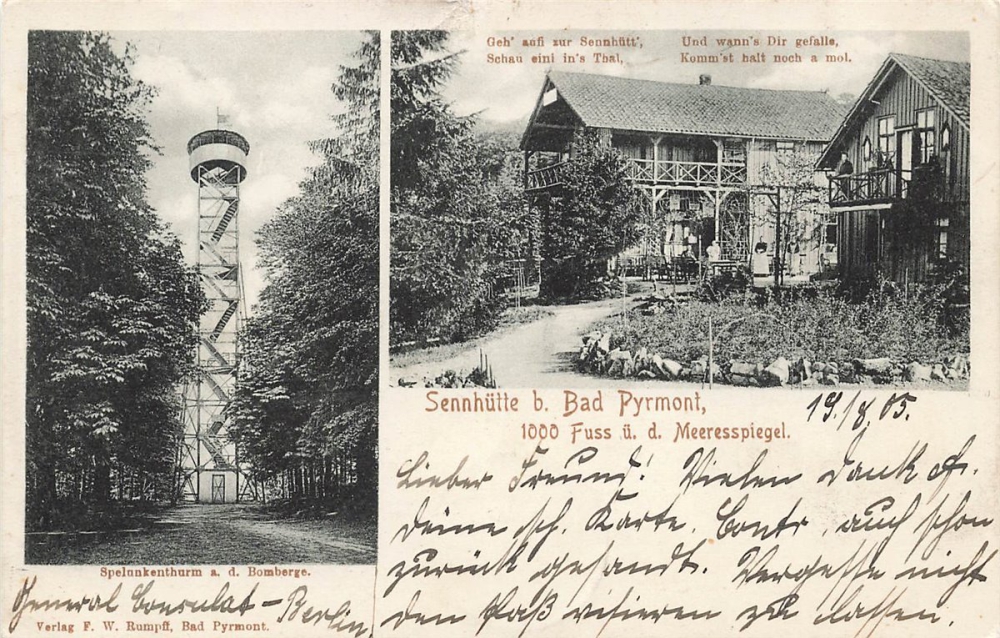 Geh' aufi zur Sennhütt',
Schau eini in's Thal,
Und wann's Dir gefalle,
Komm'st halt noch a mol.
Sennhütte b. Bad Pyrmont,
1000 Fuss ü. d. Meeresspiegel.
19/8.05.
Lieber Freund! Vielen Dank f.
Deine sch. Karte. Contr. auch schon
zurück gesandt. Vergesse nicht
den Paß visieren zu lassen.
Spelunkenthurm a. d. Bomberge.
General Consulat - Berlin
Verlag F. W. Rumpff, Bad Pyrmont.